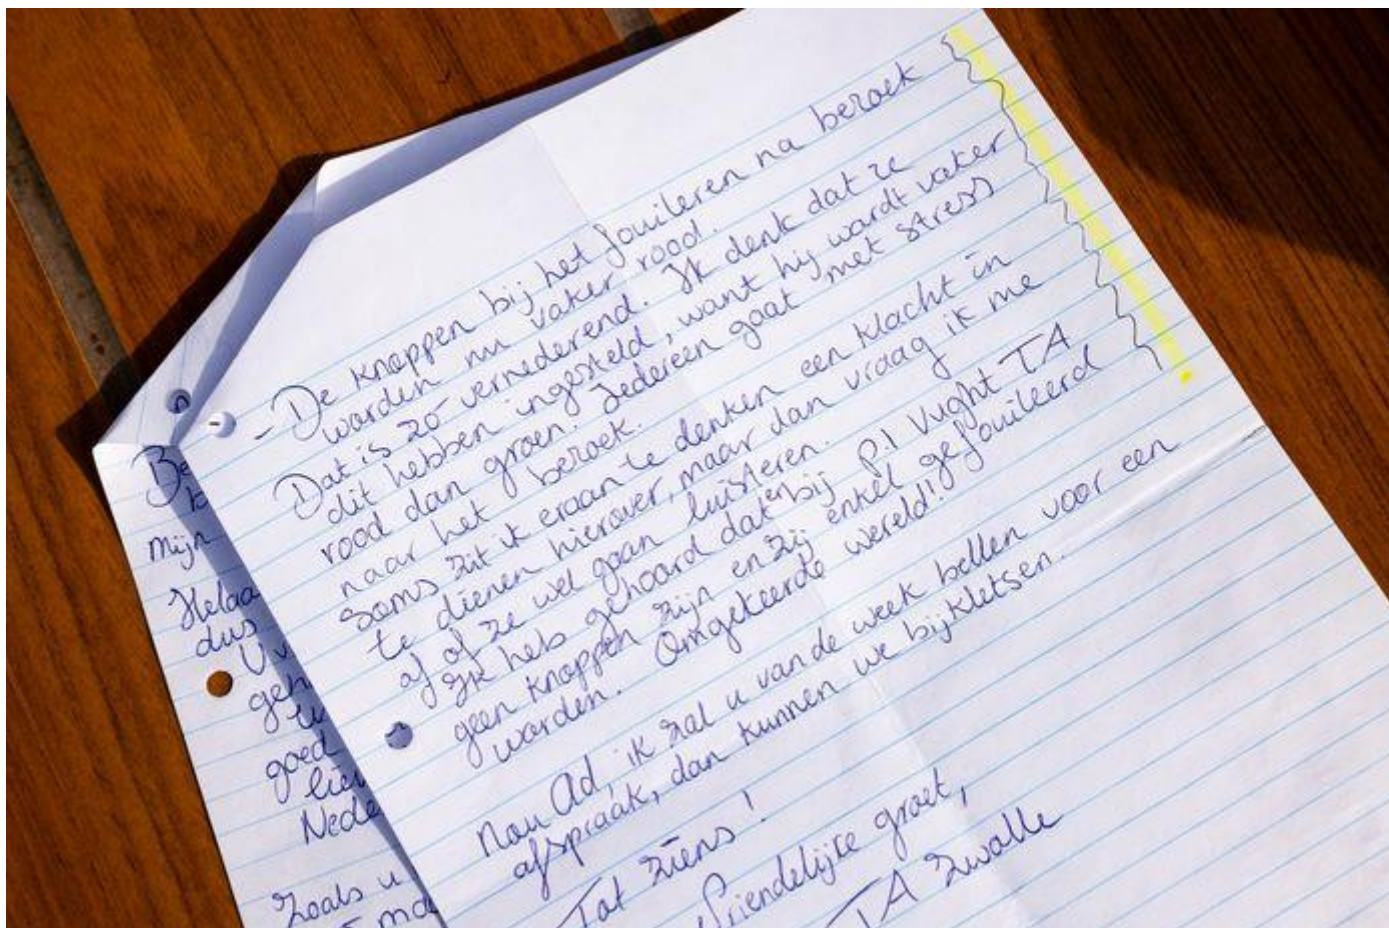 - De knoppen bij het fouileren na bezoek
worden nu vaker rood.
Dat is zo vernederend. Ik denk dat ze
dit hebben ingesteld, want hij wordt vaker
rood dan groen. Iedereen gaat met stress
naar het bezoek.
Soms zit ik eraan te denken een klacht in
te dienen hierover, maar dan vraag ik me
af of ze wel gaan luisteren.
Ik heb gehoord dat er bij P.I Vught TA
geen knoppen zijn en zij enkel gefouileerd
worden. Omgekeerde wereld!
Nou Ad, ik zal u van de week bellen voor een
afspraak, dan kunnen we bijkletsen.
Tot ziens!
Vriendelijke groet,
TA Zwolle
Be
Mijn
Helaa
dus
U
geh
goed
Nede
Zoals u